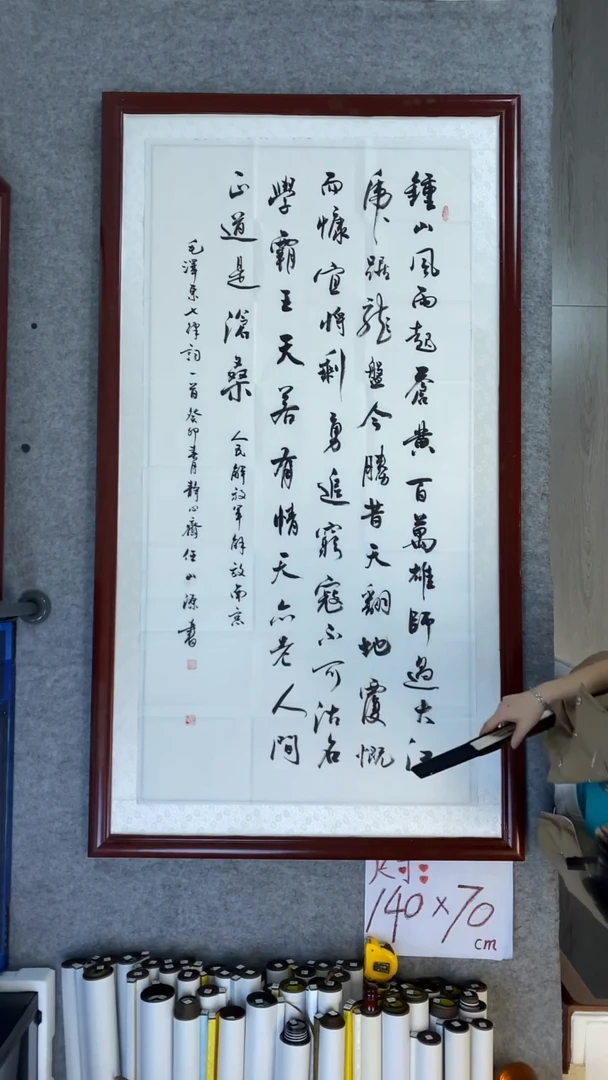 鍾山風雨起蒼黄百萬雄師過大江
虎踞龍盤今勝昔天翻地覆慨
而慷宜將剩勇追窮寇不可沽名
學霸王天若有情天亦老人間
正道是滄桑 人民解放軍解放南京
毛澤東七律詞一首癸卯春月静心齋任山源書
尺寸:
140×70
cm